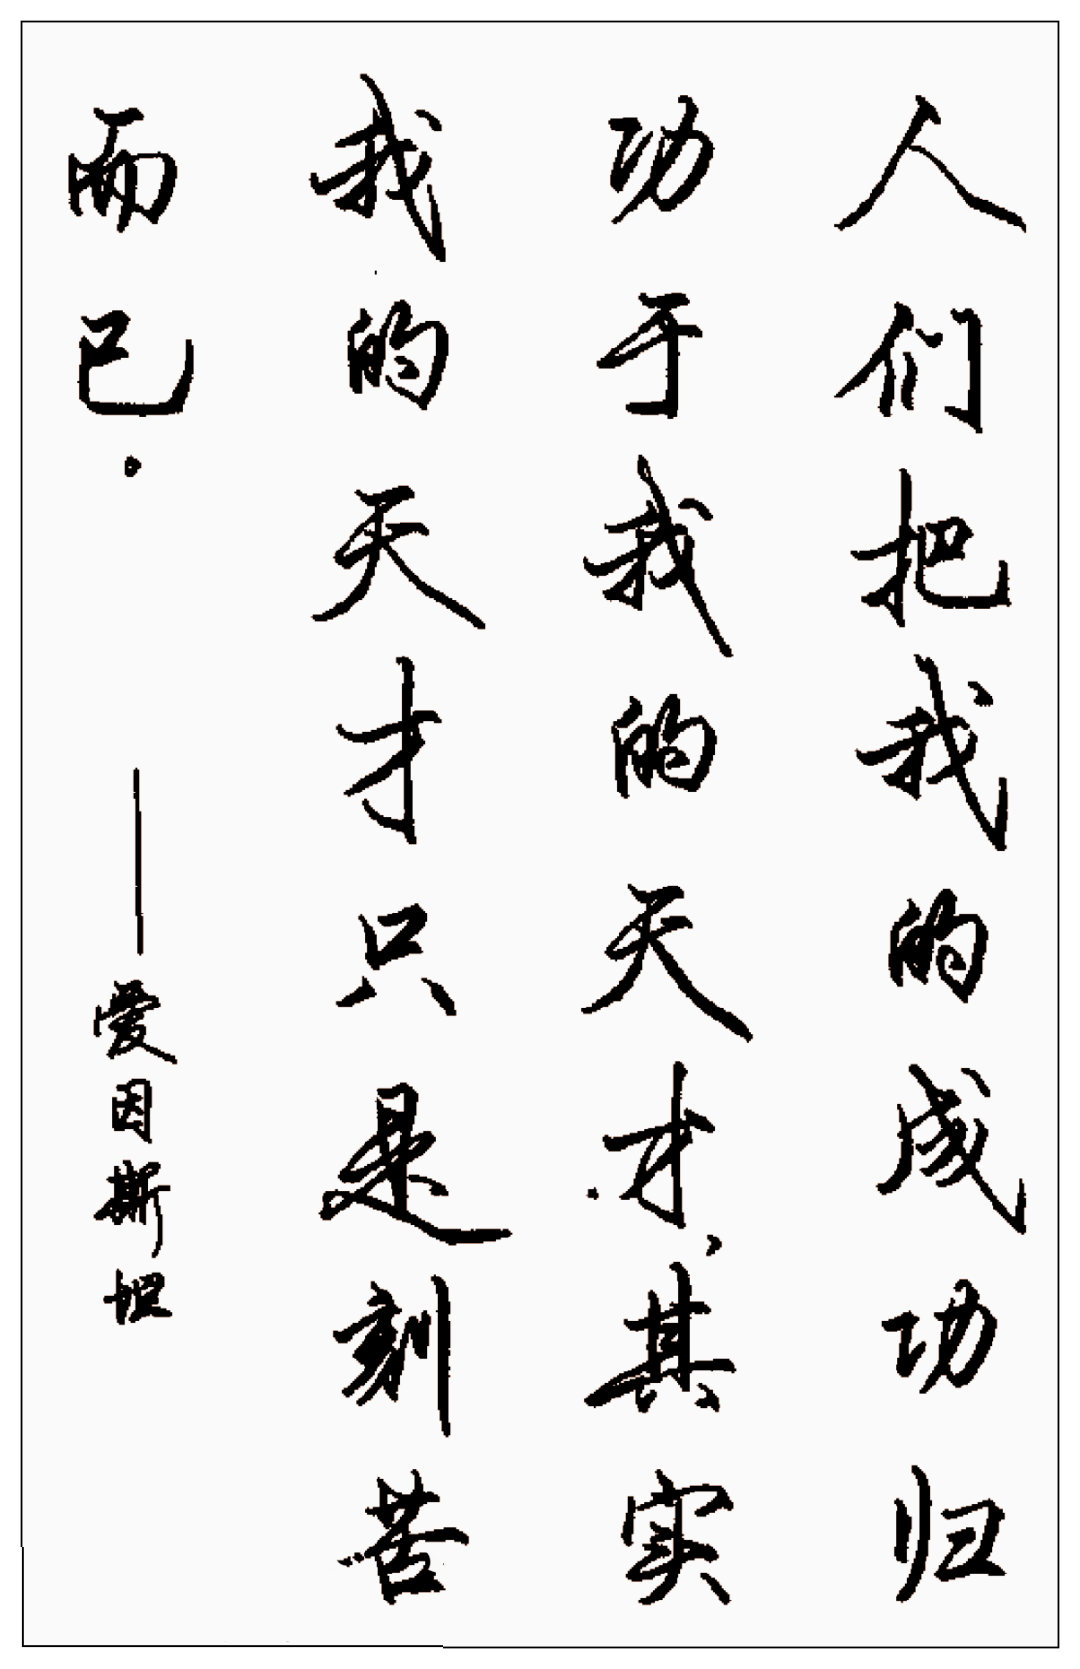 人们把我的成功归
功于我的天才、其实
我的天才只是刻苦
而已。
——爱因斯坦